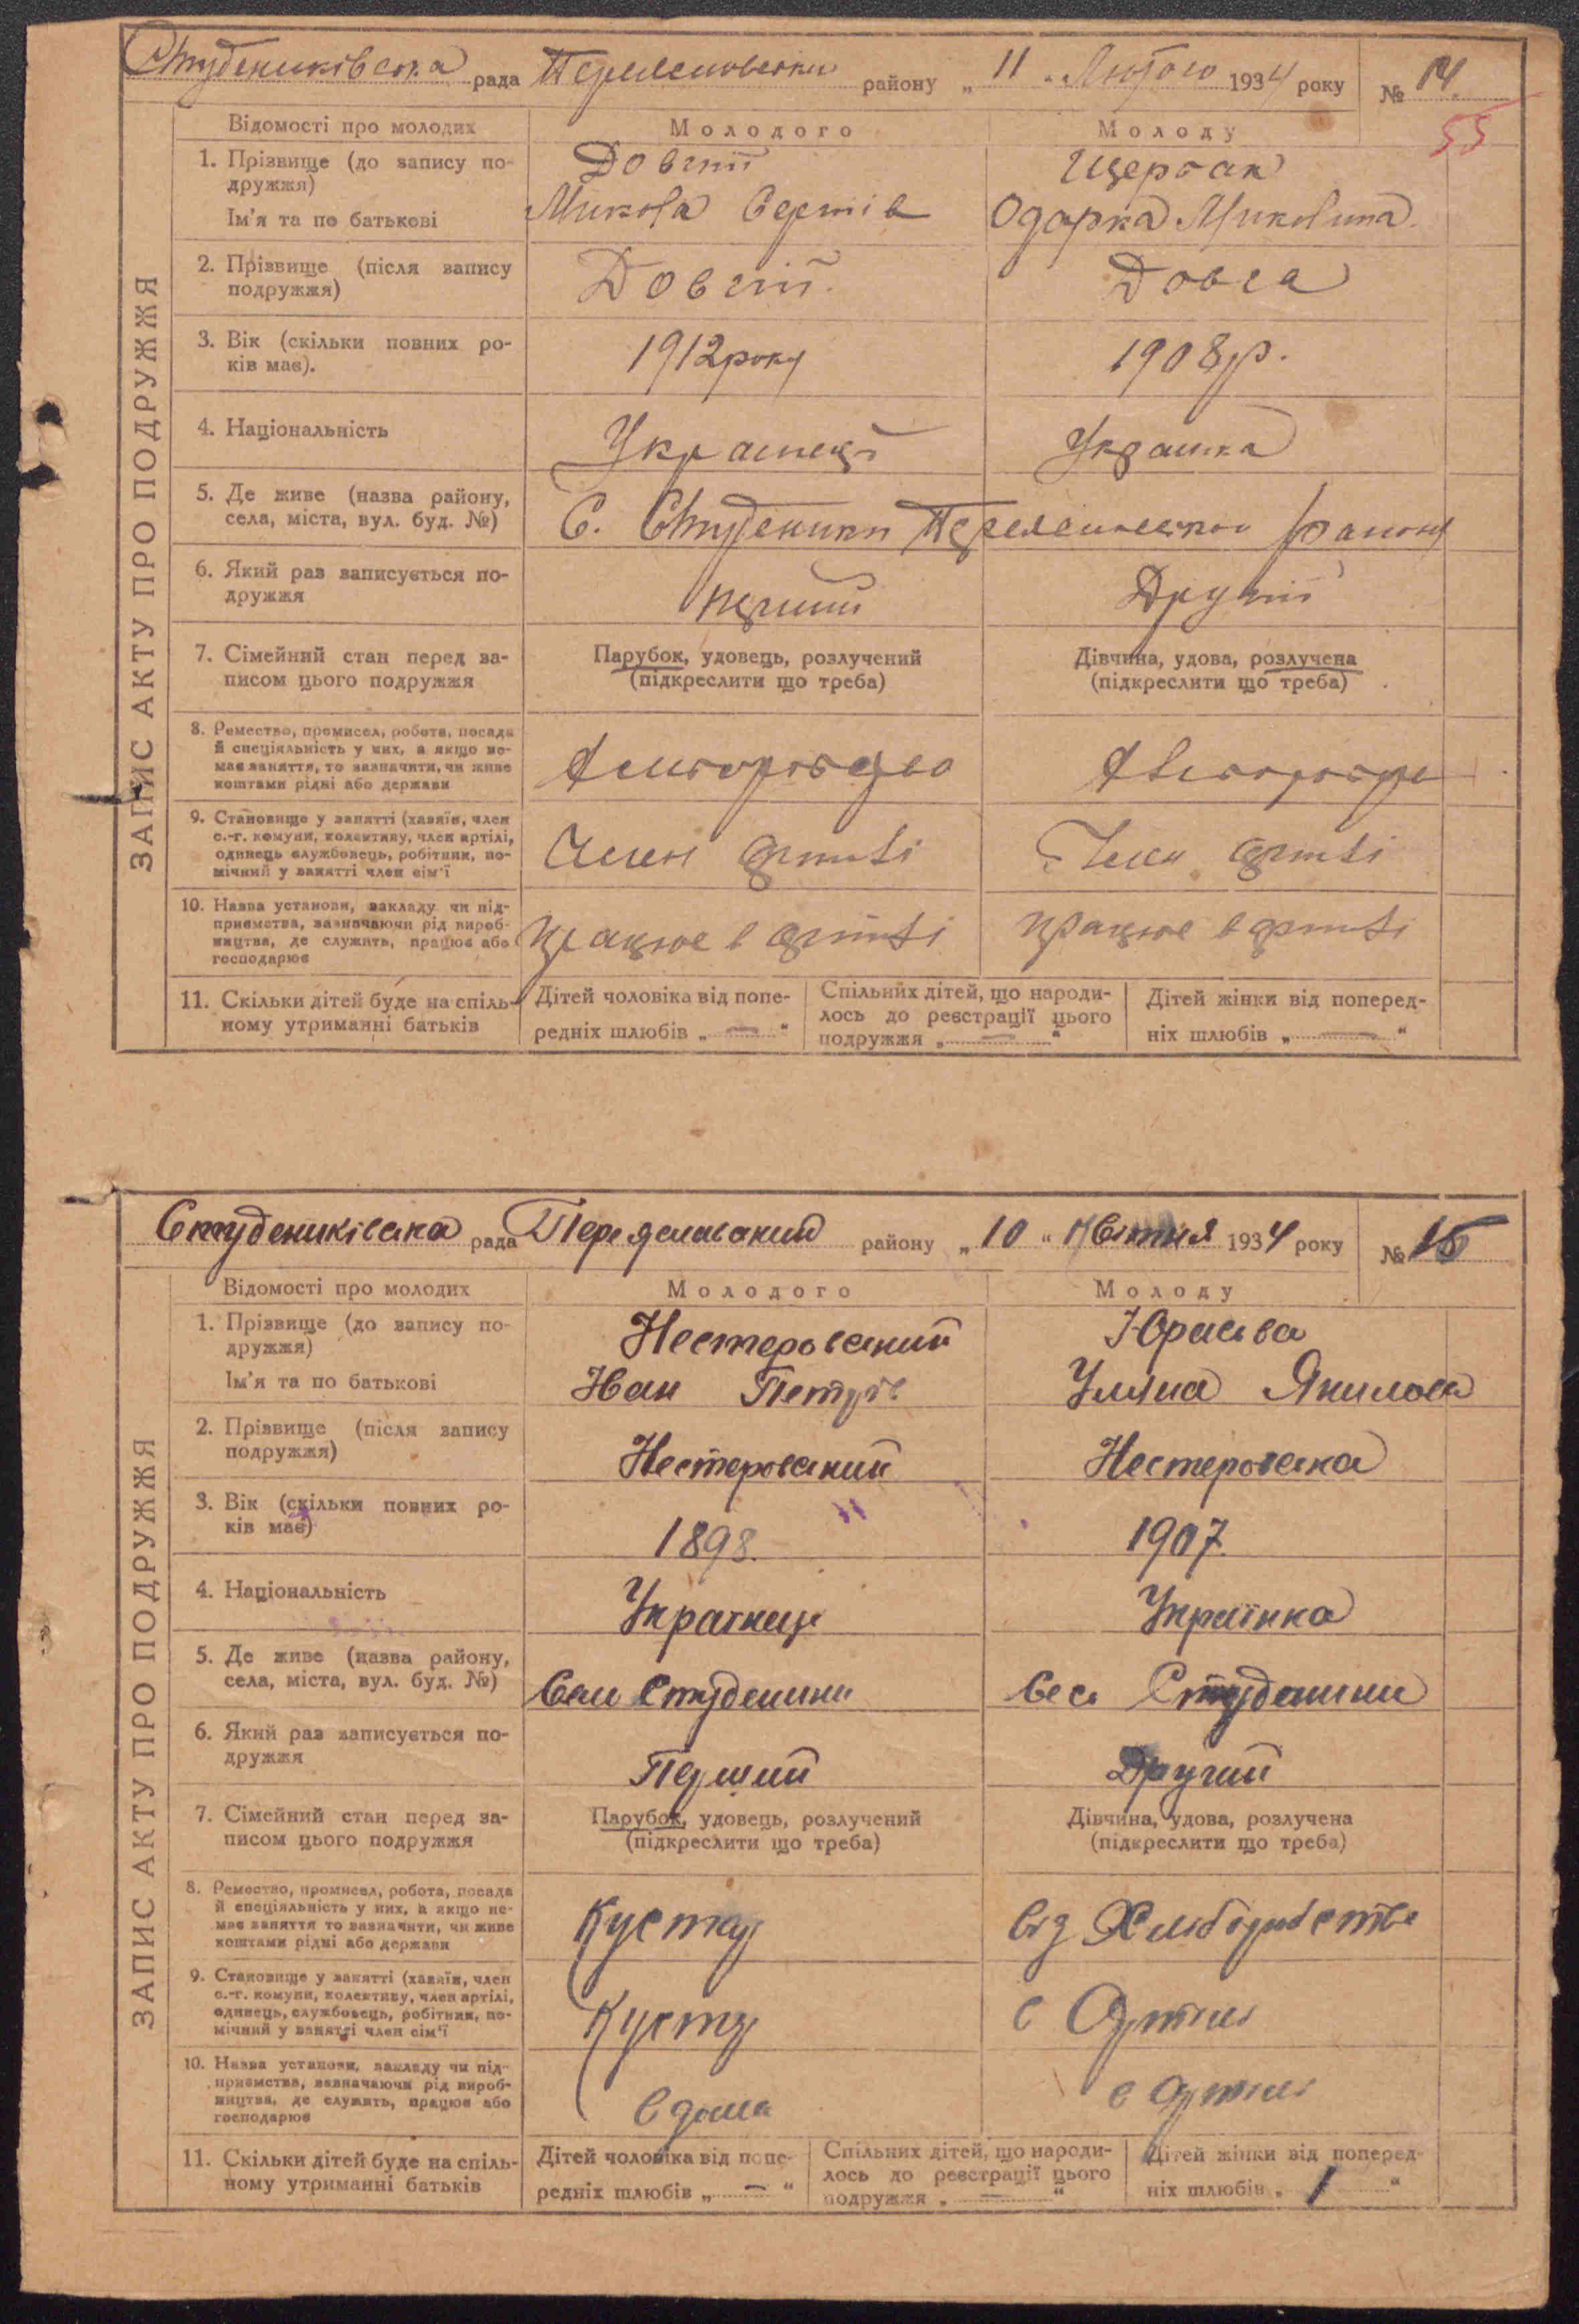 Студениківська рада Переяславського району „ 11 “ Лютого 1934 року № 14
55
ЗАПИС АКТУ ПРО ПОДРУЖЖЯ
Відомості про молодих Молодого Молоду
1. Прізвище (до запису по-
дружжя) Довгий Щербак
Ім'я та по батькові Микола Сергіїв Одарка Миколина
2. Прізвище (після запису
подружжя) Довгий Довга
3. Вік (скільки повних ро-
ків має). 1912 року 1908 р.
4. Національність Українець Українка
5. Де живе (назва району,
села, міста, вул. буд. №) С. Студеники району
6. Який раз записується по-
дружжя перший Другий
7. Сімейний стан перед за-
писом цього подружжя
Парубок, удовець, розлучений
(підкреслити що треба)
Дівчина, удова, розлучена
(підкреслити що треба)
8. Ремество, промисел, робота, посада
й спеціяльність у них, а якщо не-
має заняття, то зазначити, чи живе
коштами рідні або держави
9. Становище у занятті (хазяїн, член
с.-г. комуни, колективу, член артілі,
одинець службовець, робітник, по-
мічний у занятті член сім'ї
Член артілі Член артілі
10. Назва установи, закладу чи під-
приємства, зазначаючи рід вироб-
ництва, де служить, працює або
господарює
працює в артілі працює в артілі
11. Скільки дітей буде на спіль-
ному утриманні батьків
Дітей чоловіка від попе-
редніх шлюбів „ — “
Спільних дітей, що народи-
лось до реєстрації цього
подружжя „ — “
Дітей жінки від поперед-
ніх шлюбів „ — “
Студениківска рада Переяславский району „ 10 “ Квітня 1934 року № 15
ЗАПИС АКТУ ПРО ПОДРУЖЖЯ
Відомості про молодих Молодого Молоду
1. Прізвище (до запису по-
дружжя) Нестеровский
Ім'я та по батькові Іван Петрів Уляна Якилова
2. Прізвище (після запису
подружжя) Нестеровский Нестеровска
3. Вік (скільки повних ро-
ків має) 1898. 1907.
4. Національність Українець Українка
5. Де живе (назва району,
села, міста, вул. буд. №) Село Студеники Село Студеники
6. Який раз записується по-
дружжя Перший Другий
7. Сімейний стан перед за-
писом цього подружжя
Парубок, удовець, розлучений
(підкреслити що треба)
Дівчина, удова, розлучена
(підкреслити що треба)
8. Ремество, промисел, робота, посада
й спеціяльність у них, а якщо не-
має заняття то зазначити, чи живе
коштами рідні або держави
Кустар від Хліборобства
9. Становище у занятті (хазяїн, член
с.-г. комуни, колективу, член артілі,
одинець, службовець, робітник, по-
мічний у занятті член сім'ї
Кустар в Артілі
10. Назва установи, закладу чи під-
приємства, зазначаючи рід вироб-
ництва, де служить, працює або
господарює
в дома в артілі
11. Скільки дітей буде на спіль-
ному утриманні батьків
Дітей чоловіка від попе-
редніх шлюбів „ — “
Спільних дітей, що народи-
лось до реєстрації цього
подружжя „ — “
Дітей жінки від поперед-
ніх шлюбів „ 1 “